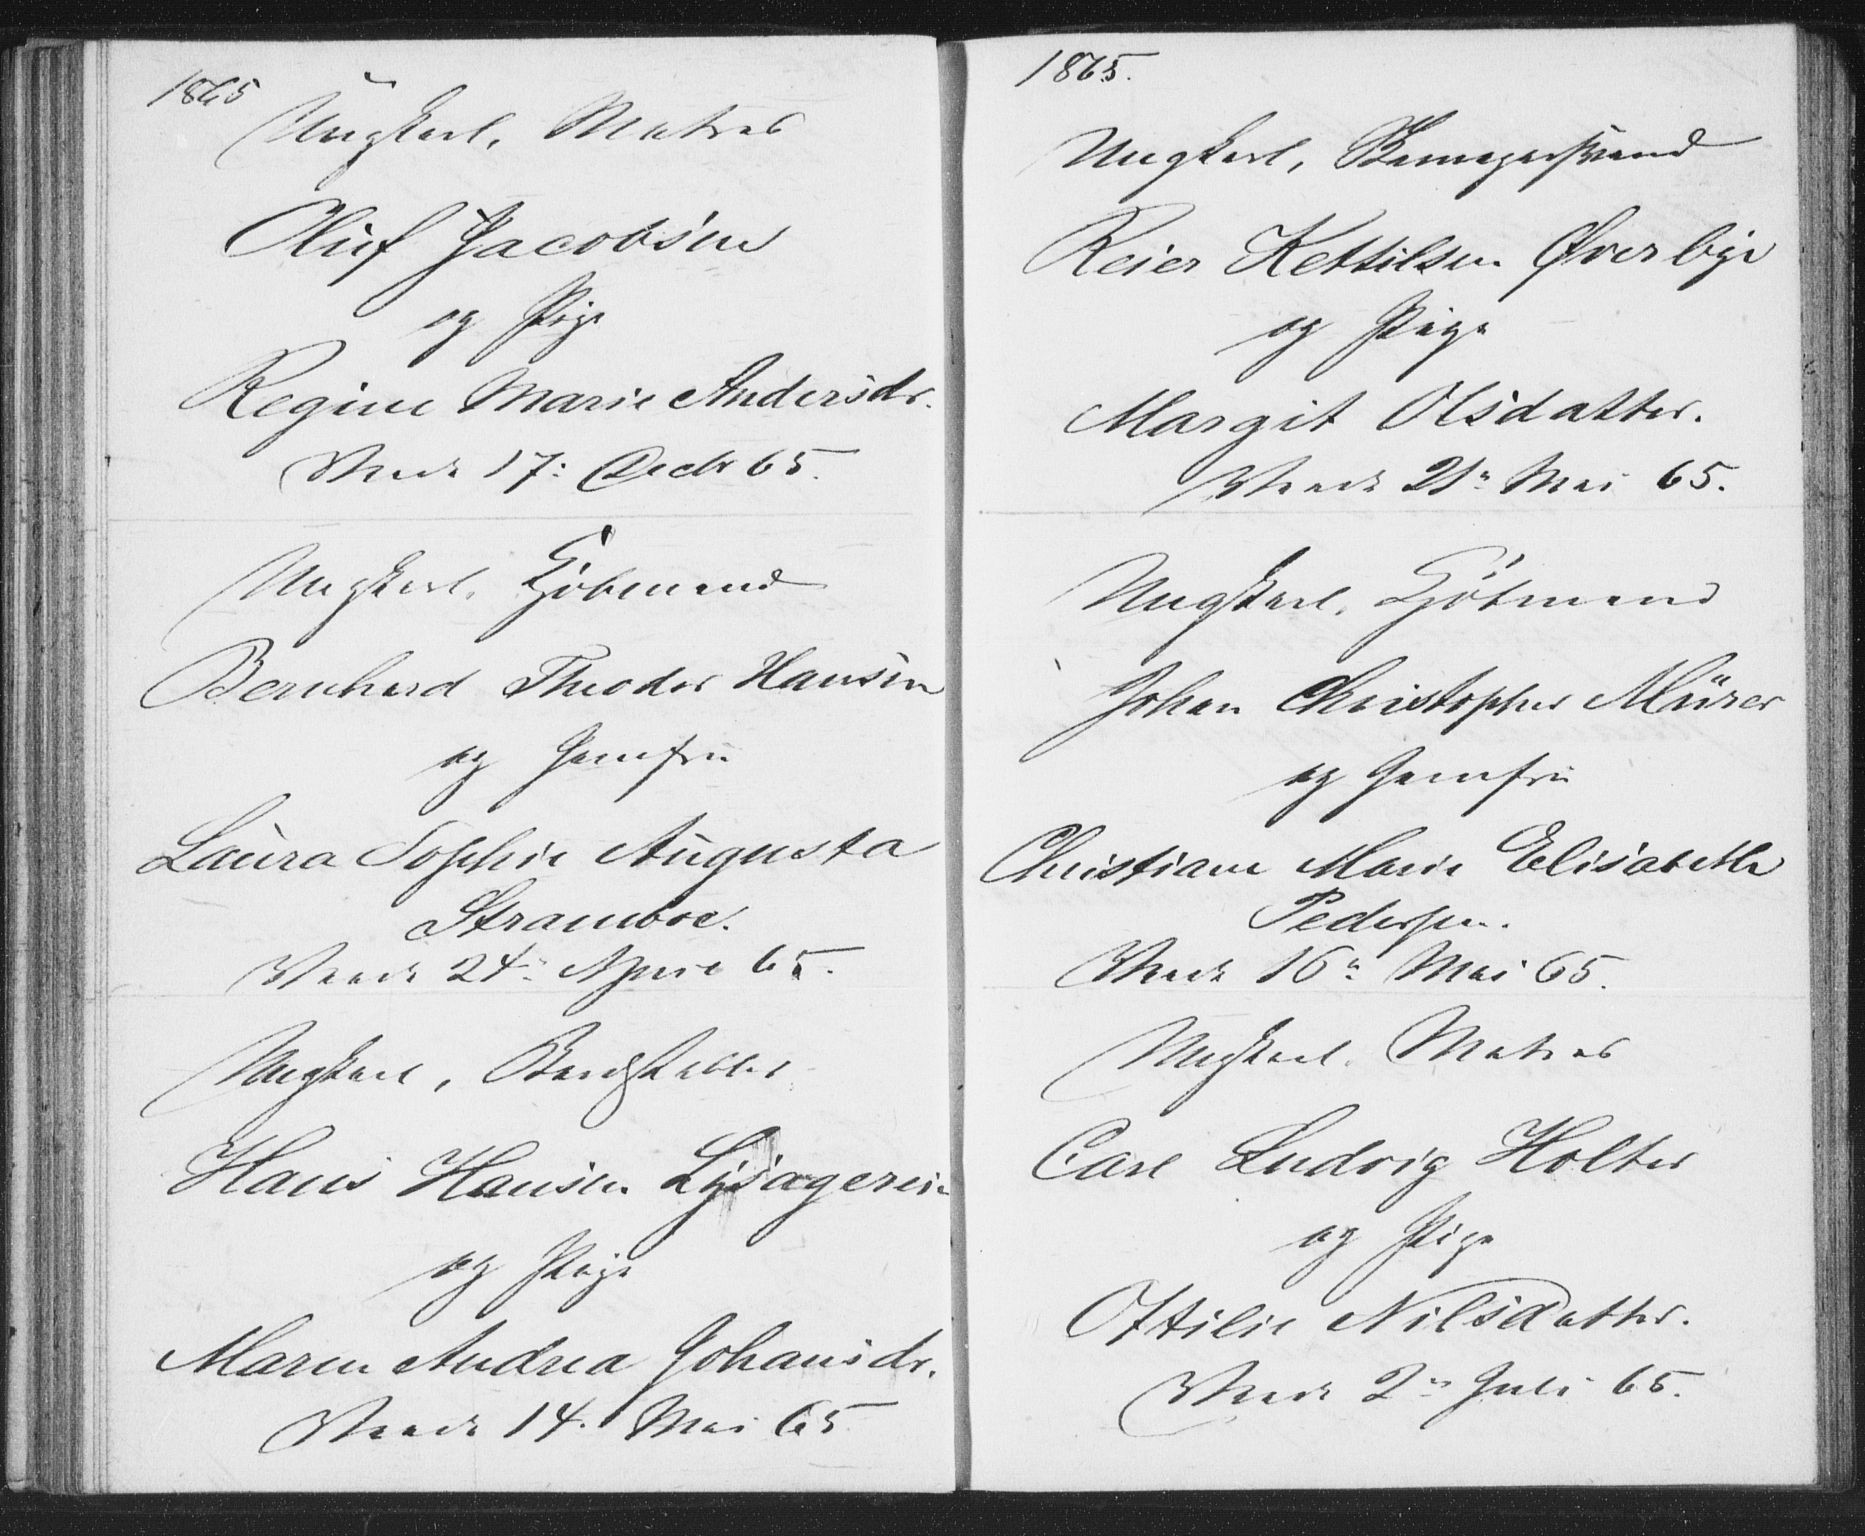 1865
Ungkarl, Matros
Oluf Jacobsen
og Pige
Regine Marie Andersdr.
Viede 17: Decbr 65.
Ungkarl, Kjöbmand
Bernhard Theodor Hansen
og Jomfru
Laura Sophie Augusta
Stramboe.
Viede 24de April 65.
Ungkarl,
Hans Hansen
og Pige
Maren Andrea Johansdr.
Viede 14. Mai 65
1865.
Ungkarl,
Reier Kettilsen Øverbye
og Pige
Margit Olsdatter.
Viede 21de Mai 65.
Ungkarl, Kjöbmand
Johan Christopher Mürer
og Jomfru
Christiane Marie Elisabeth
Pedersen.
Viede 16de Mai 65.
Ungkarl, Matros
Carl Ludvig Holter
og Pige
Ottilie Nilsdatter.
Viede 2de Juli 65.